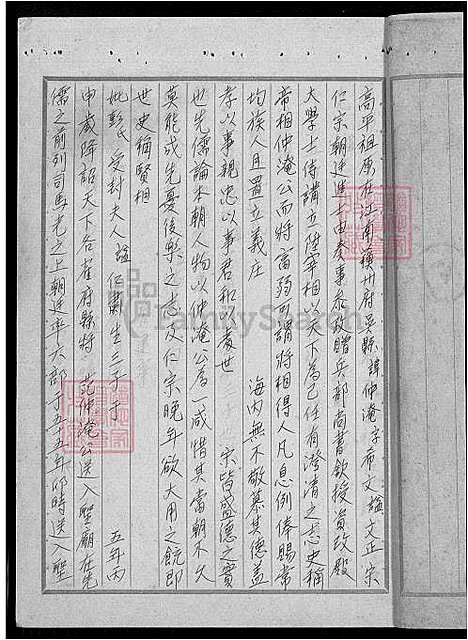 高平祖原在江南蘇州府吳縣諱仲淹字希文謚文正宗
仁宗朝廷進士由參事參政贈兵部尚書欽授資政殿
大學士侍講立陞宰相以天下為己任有澄清之志史稱
帝相仲淹公而將富弼可謂將相得人凡恩例俸賜常
均族人且置立義庄 海內無不敬慕其德蓋
孝以事親忠以事君和以處世 宗皆盛德之實
也先儒論本朝人物以仲淹公為一咸惜其當朝不久
莫能成先憂後樂之志及仁宗晚年欲大用之饒即
世史稱賢相
妣彭氏受封夫人謚仁蕭生三子于 五年丙
申歲降詔天下各省府縣將 范仲淹公送入聖廟在先
儒之前列司馬光之上朝廷率六部于五五年卯時送入聖
FamilySearch